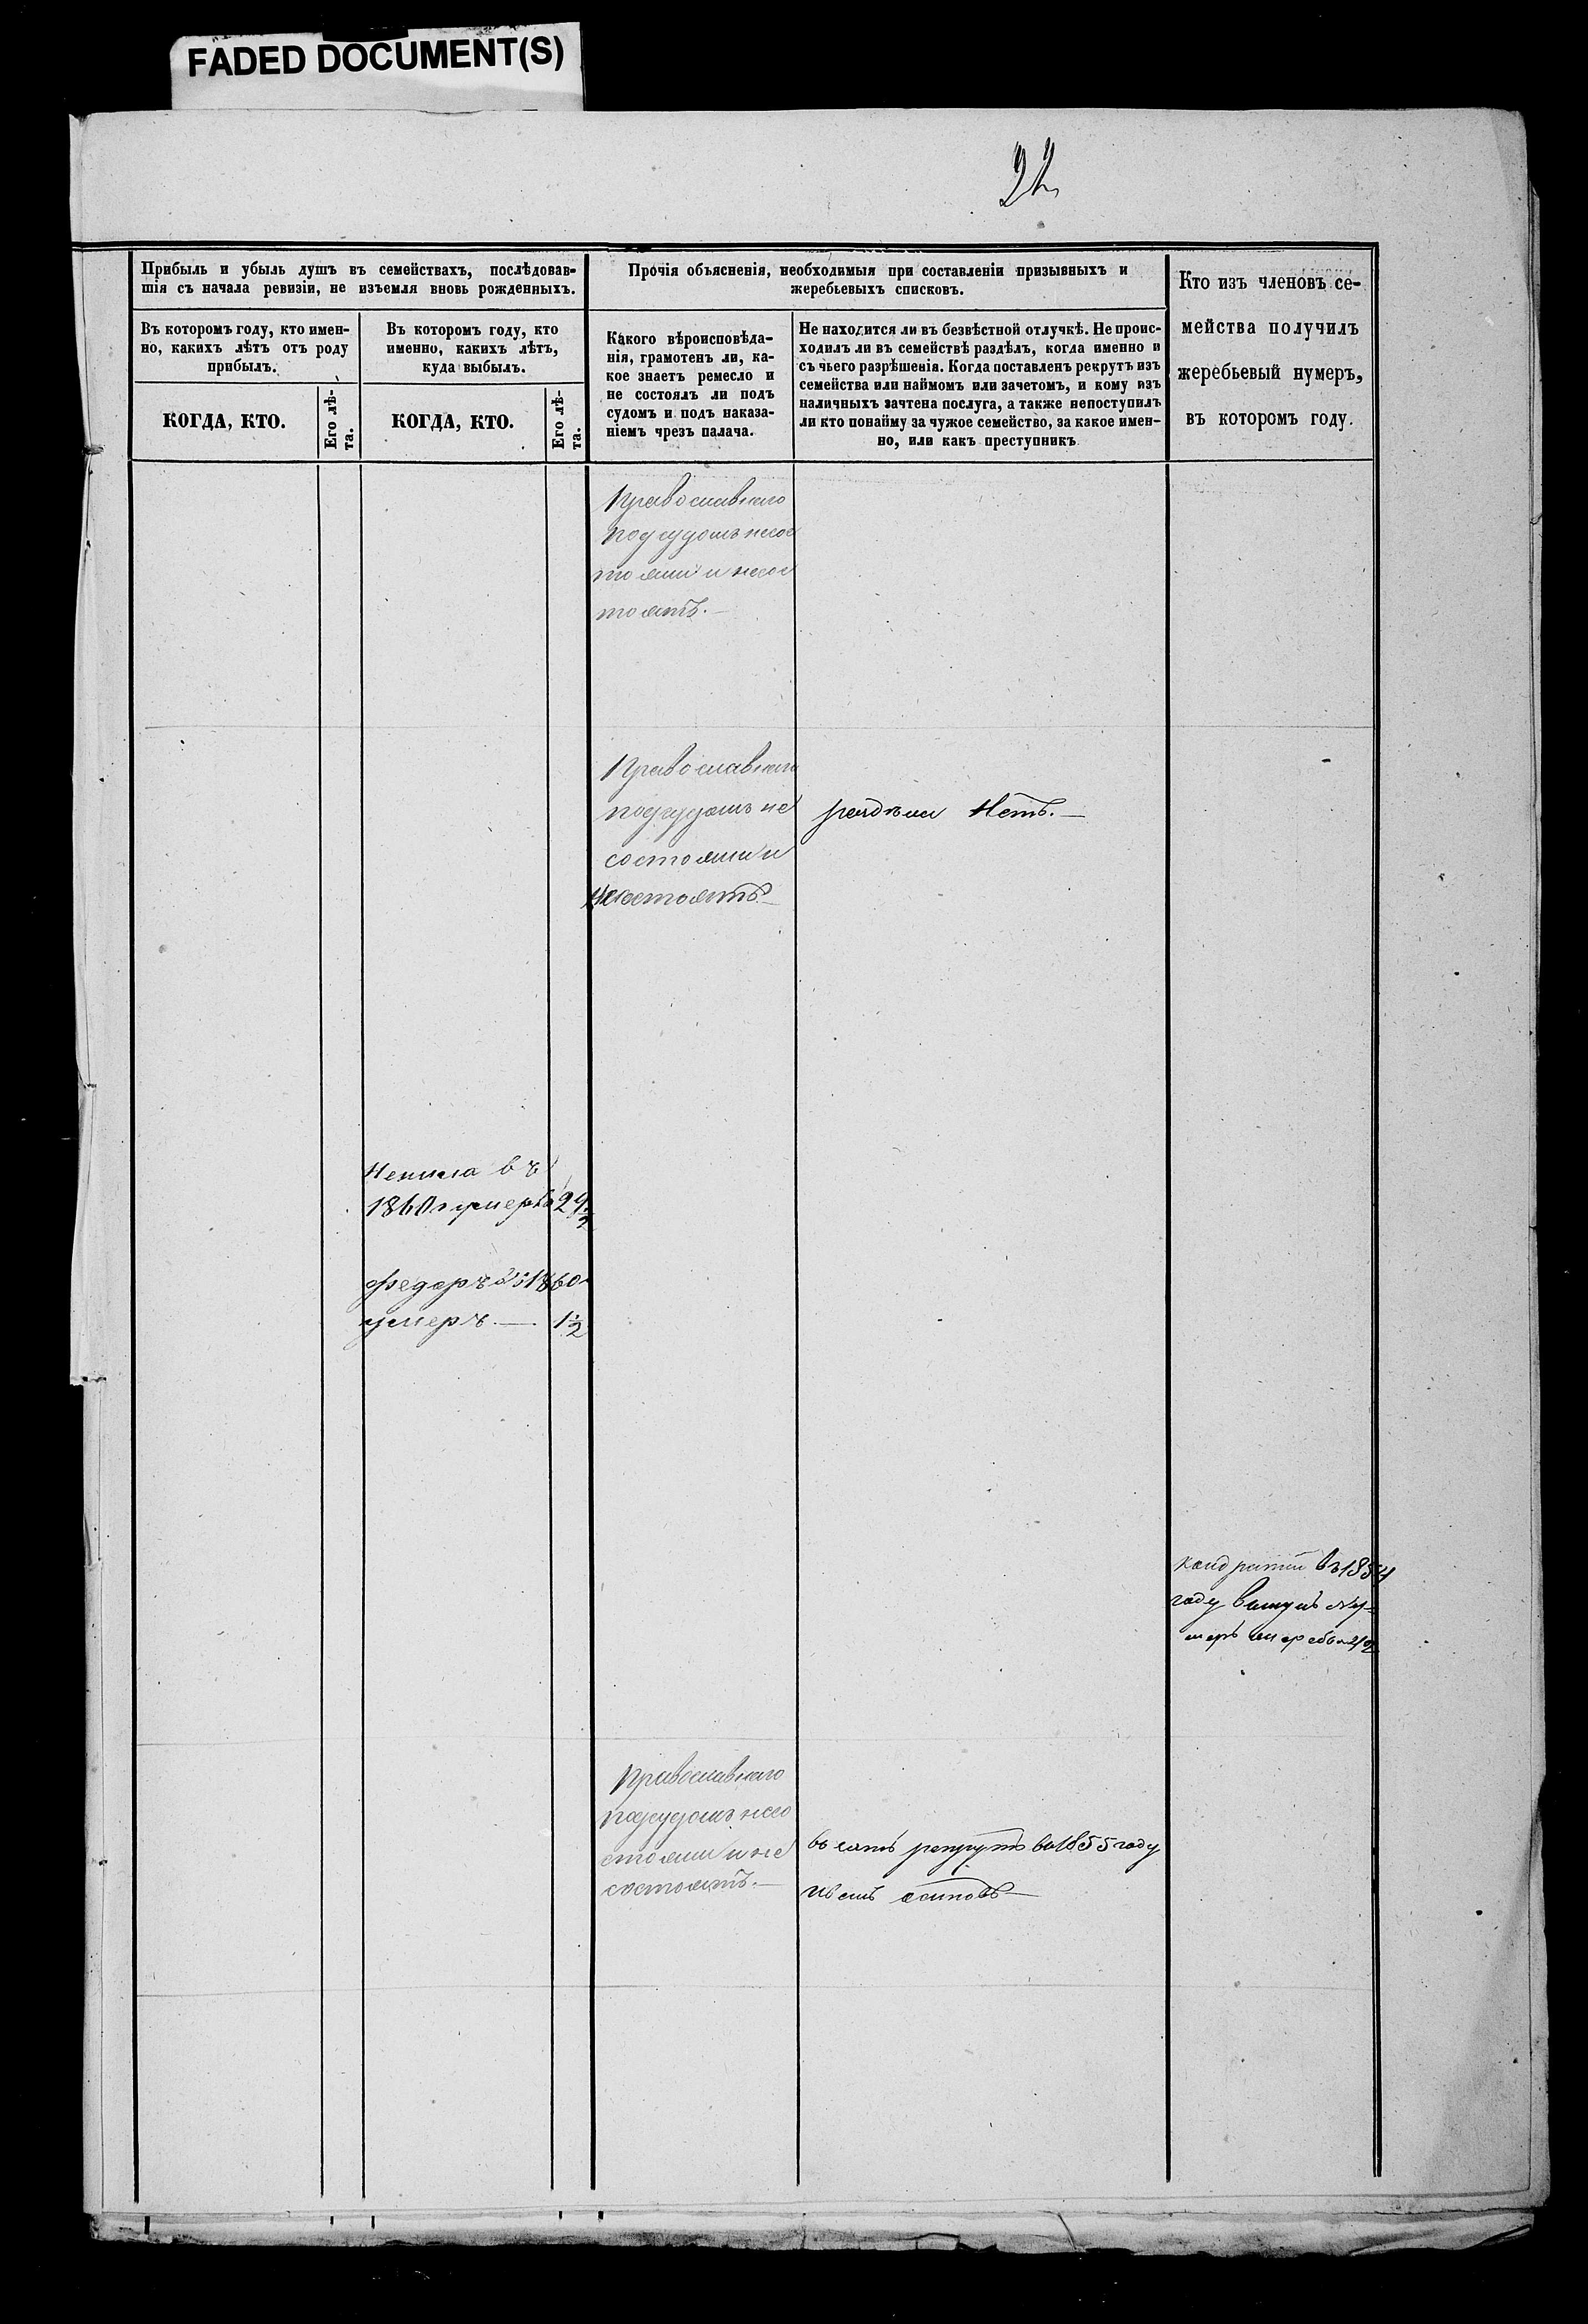 FADED DOCUMENT(S)
22
Прибыль и убыль душъ въ семействахъ, послѣдовав-
шія съ начала ревизіи, не изъемля вновь рожденныхъ.
Прочія объясненія, необходимыя при составленіи призывныхъ и
жеребьевыхъ списковъ.
Кто изъ членовъ се-
мейства получилъ
жеребьевый нумеръ,
въ которомъ году.
Въ которомъ году, кто имен-
но, какихъ лѣтъ отъ роду
прибылъ.
Въ которомъ году, кто
именно, какихъ лѣтъ,
куда выбылъ.
Какого вѣроисповѣда-
нія, грамотенъ ли, ка-
кое знаетъ ремесло и
не состоялъ ли подъ
судомъ и подъ наказа-
ніемъ чрезъ палача.
Не находится ли въ безвѣстной отлучкѣ. Не проис-
ходилъ ли въ семействѣ раздѣлъ, когда именно и
съ чьего разрѣшенія. Когда поставленъ рекрутъ изъ
семейства или наймомъ или зачетомъ, и кому изъ
наличныхъ зачтена послуга, а также непоступилъ
ли кто понайму за чужое семейство, за какое имен-
но, или какъ преступникъ
КОГДА, КТО.
Его лѣ-
та.
КОГДА, КТО.
Его лѣ-
та.
Православнаго
подсудомъ несос
тояли и несос
тоятъ.—
Православнаго
подсудомъ не
состояли и
несостоятъ.—
раздѣла Нетъ.—
въ
1860 г умеръ
Федоръ въ 1860
умеръ.— 1½
въ 1854
году вынулъ ну-
меръ жеребья
Православнаго
подсудомъ несо
стояли и не
состоятъ.—
взятъ рекрутъ въ 1855 году
Иванъ Осиповъ—